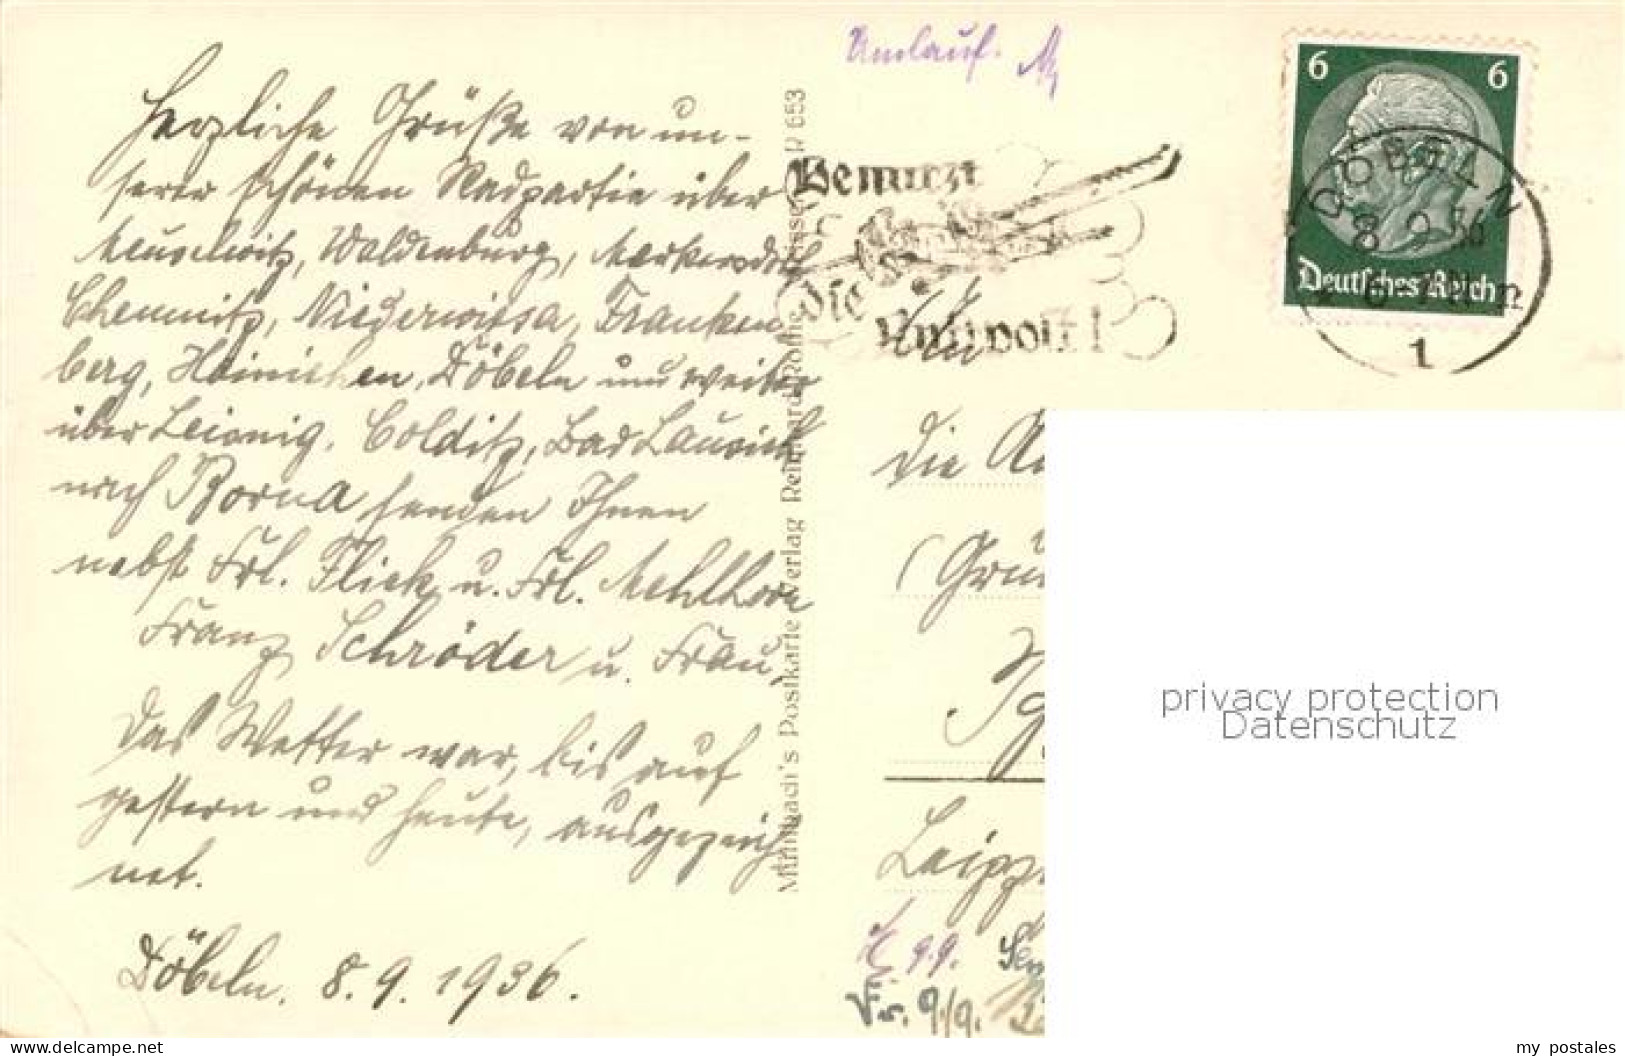 Umlauf.
Herzliche Grüße von un-
serer schönen Radpartie über
Meuselwitz, Waldenburg, Markersdorf
Chemnitz, Niederwiesa, Franken
berg, Hainichen, Döbeln und weiter
über Leisnig, Colditz, Bad Lausick
nach Borna senden Ihnen
nebst Frl. Flick u. Frl. Mehlhorn
Franz Schröder u. Frau.
Das Wetter war, bis auf
gestern und heute, ausgezeich
net.
Döbeln. 8.9.1936.
Postkarten-Verlag Reinhard Rothe
R 653
Benutzt
die
Luftpost!
6 6
Deutsches Reich
DÖBELN
8 9 36
1
An
die
Leipz
9.9.
9/9.
privacy protection
Datenschutz
www.delcampe.net
my_postales